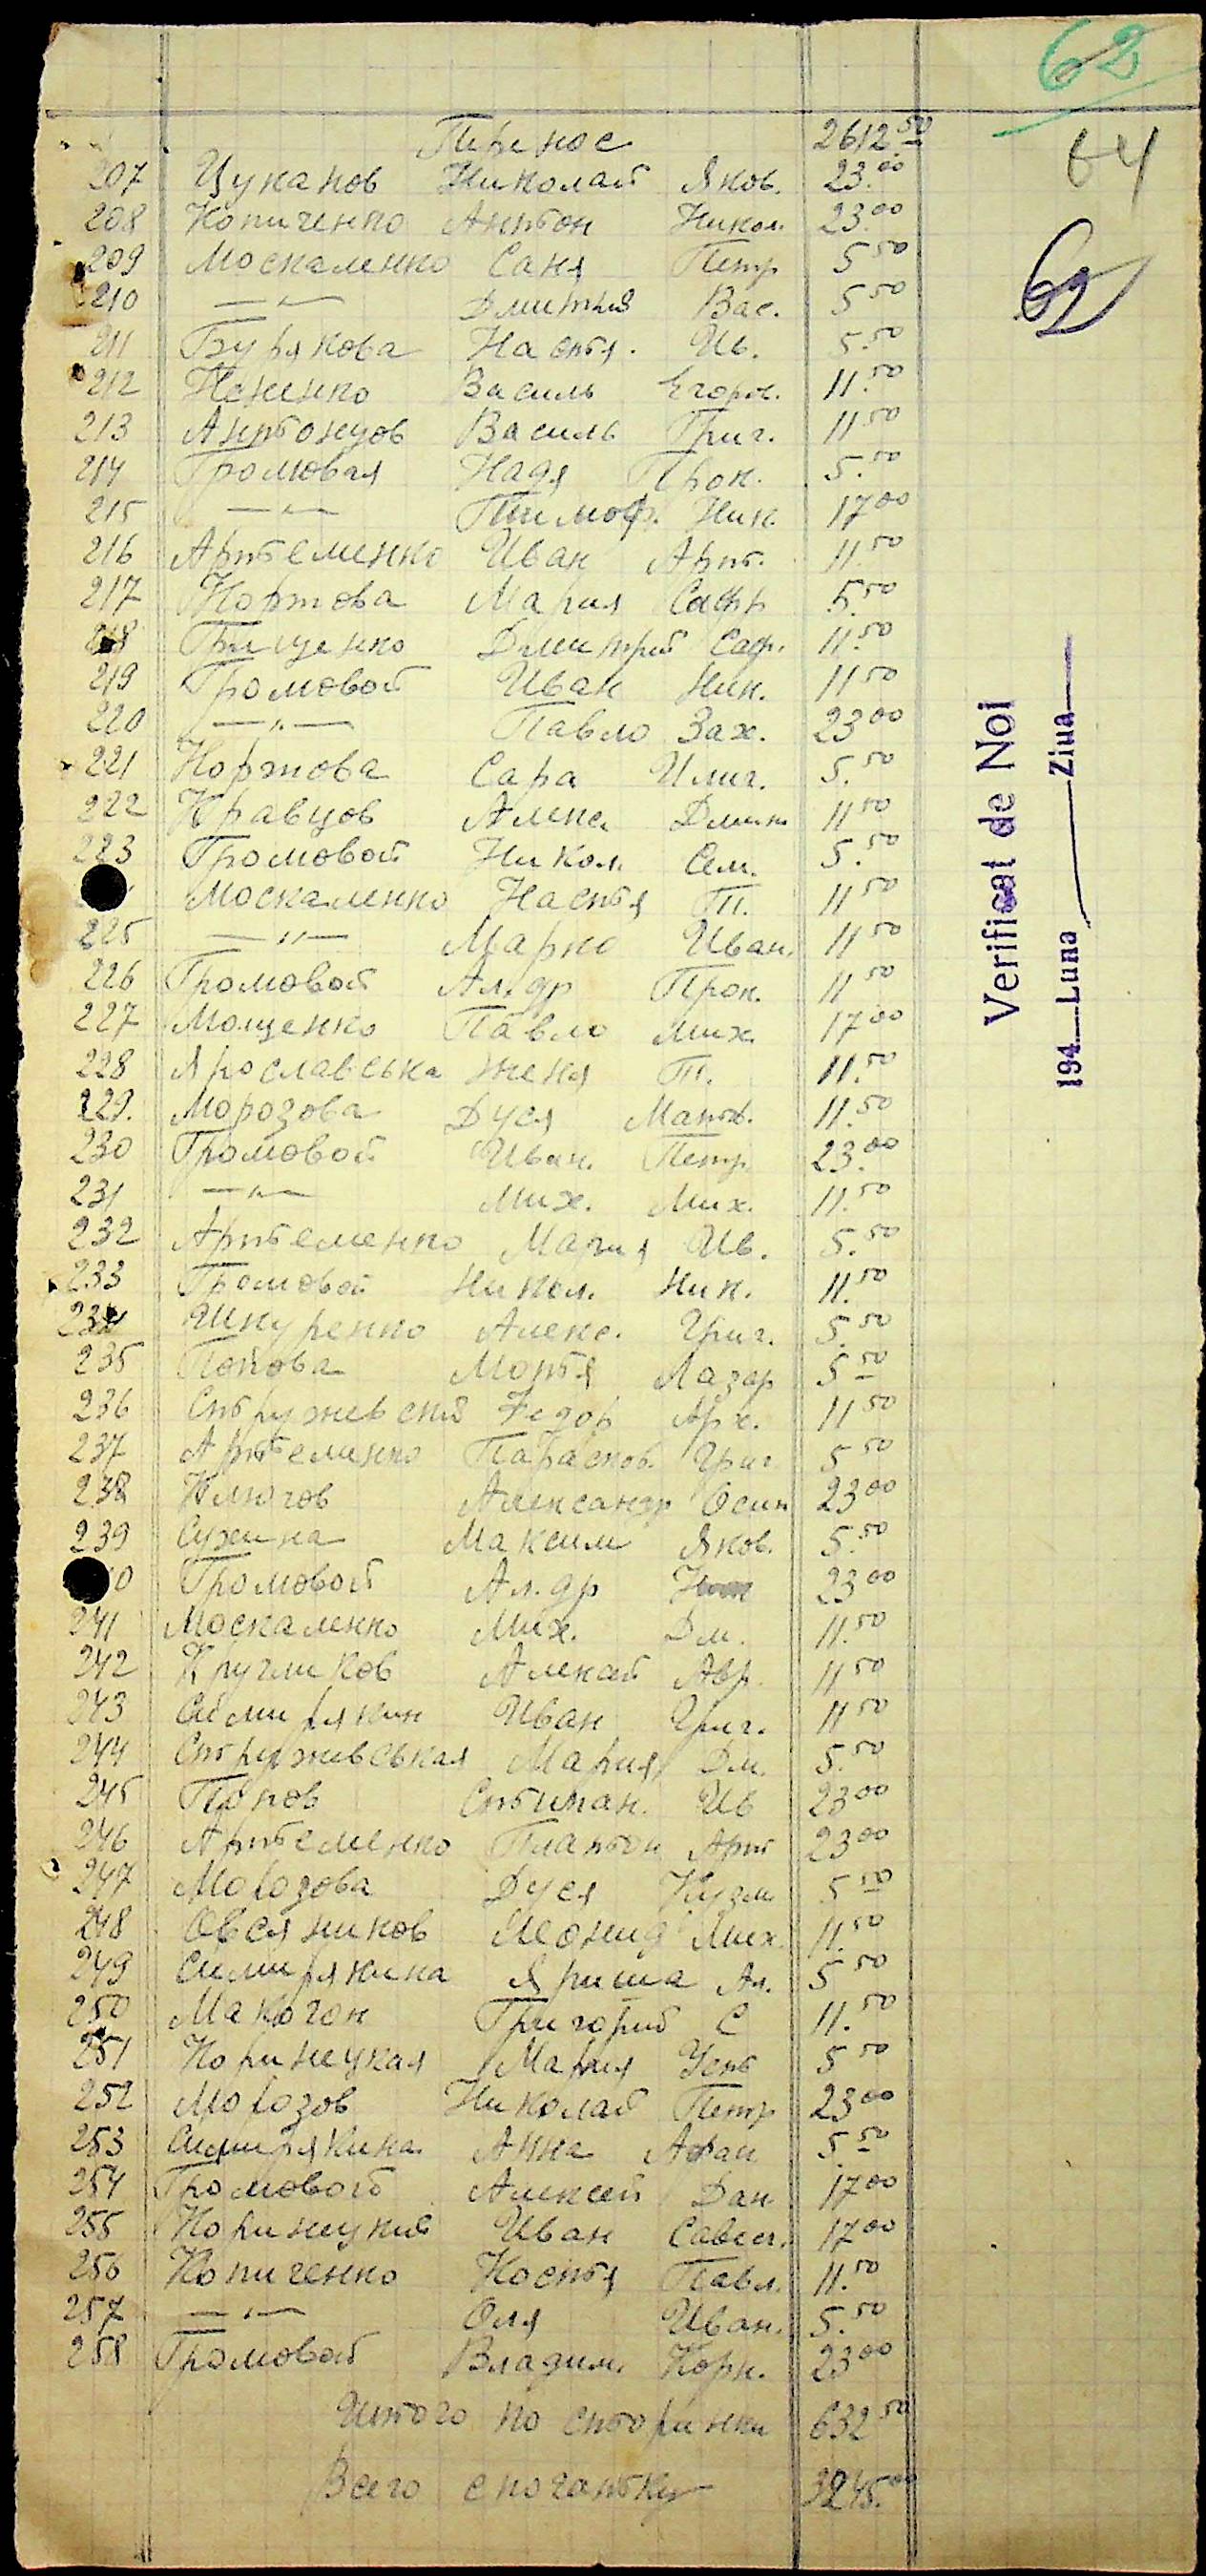 62
64
62
Перенос 2612 50
207 Цуканов Николай Яков. 23.00
208 Копиченко Антон Никол. 23.00
209 Москаленко Саня Петр 5 50
210 —"— Дмитрий Вас. 5 50
211 Бурякова Настя. Ив. 5.50
212 Василь Егоров. 11.50
213 Антонцов Василь Григ. 11 50
214 Громовая Надя Прок. 5.50
215 —"— Тимоф. Ник. 17 00
216 Артеменко Иван Арт. 11.50
217 Мария 5.50
218 Грищенко Дмитрий Саф. 11.50
219 Громовой Иван Ник. 11 50
220 —"— Павло Зах. 23 00
221 Сара Илич. 5.50
222 Кравцов Алекс. Дмит 11 50
223 Громовой Никол. Сем. 5.50
Москаленко Настя П. 11 50
225 —"— Марко Иван. 11 50
226 Громовой Ал.др Прок. 11 50
227 Мощенко Павло Мих. 17 00
228 Ярославська Женя П. 11.50
229. Морозова Дуся Матв. 11.50
230 Громовой Иван. Петр 23.00
231 —"— Мих. Мих. 11.50
232 Артеменко Мария Ив. 5.50
233 Громовой Никол. Ник. 11.50
234 Шкуренко Алекс. Григ. 5.50
235 Попова Мотя Лазар 5 50
236 Стружевский Федор Арх. 11 50
237 Артеменко Парасков. Григ 5 50
238 Ключов Александр Осип 23 00
239 Сухина Максим Яков. 5.50
Громовой Ал.др 23 00
241 Москаленко Мих. Дм. 11.50
242 Кругликов Алексей Авр. 11 50
243 Симирякин Иван Григ. 11 50
244 Стружевськая Мария Дм. 5.50
245 Попов Степан. Ив 23 00
246 Артеменко Платон Арт 23 00
247 Морозова Дуся Кузм 5 50
248 Овсяников Леонид Мих. 11.50
249 Симирякина Яриша Ал. 5 50
250 Макогон Григорий С 11.50
251 Коринецкая Мария Уст 5 50
252 Морозов Николай Петр 23 00
253 Симирякина Анна Афан 5.50
254 Громовой Алексей Дан 17 00
255 Коринецкий Иван Савел. 17 00
256 Копиченко Костя Павл. 11.50
257 —"— Оля Иван. 5.50
258 Громовой Владим. Корн. 23 00
Итого по сторинки 632 50
Всего спочатку 3245.00
Verificat de Noi
194 Luna Ziua